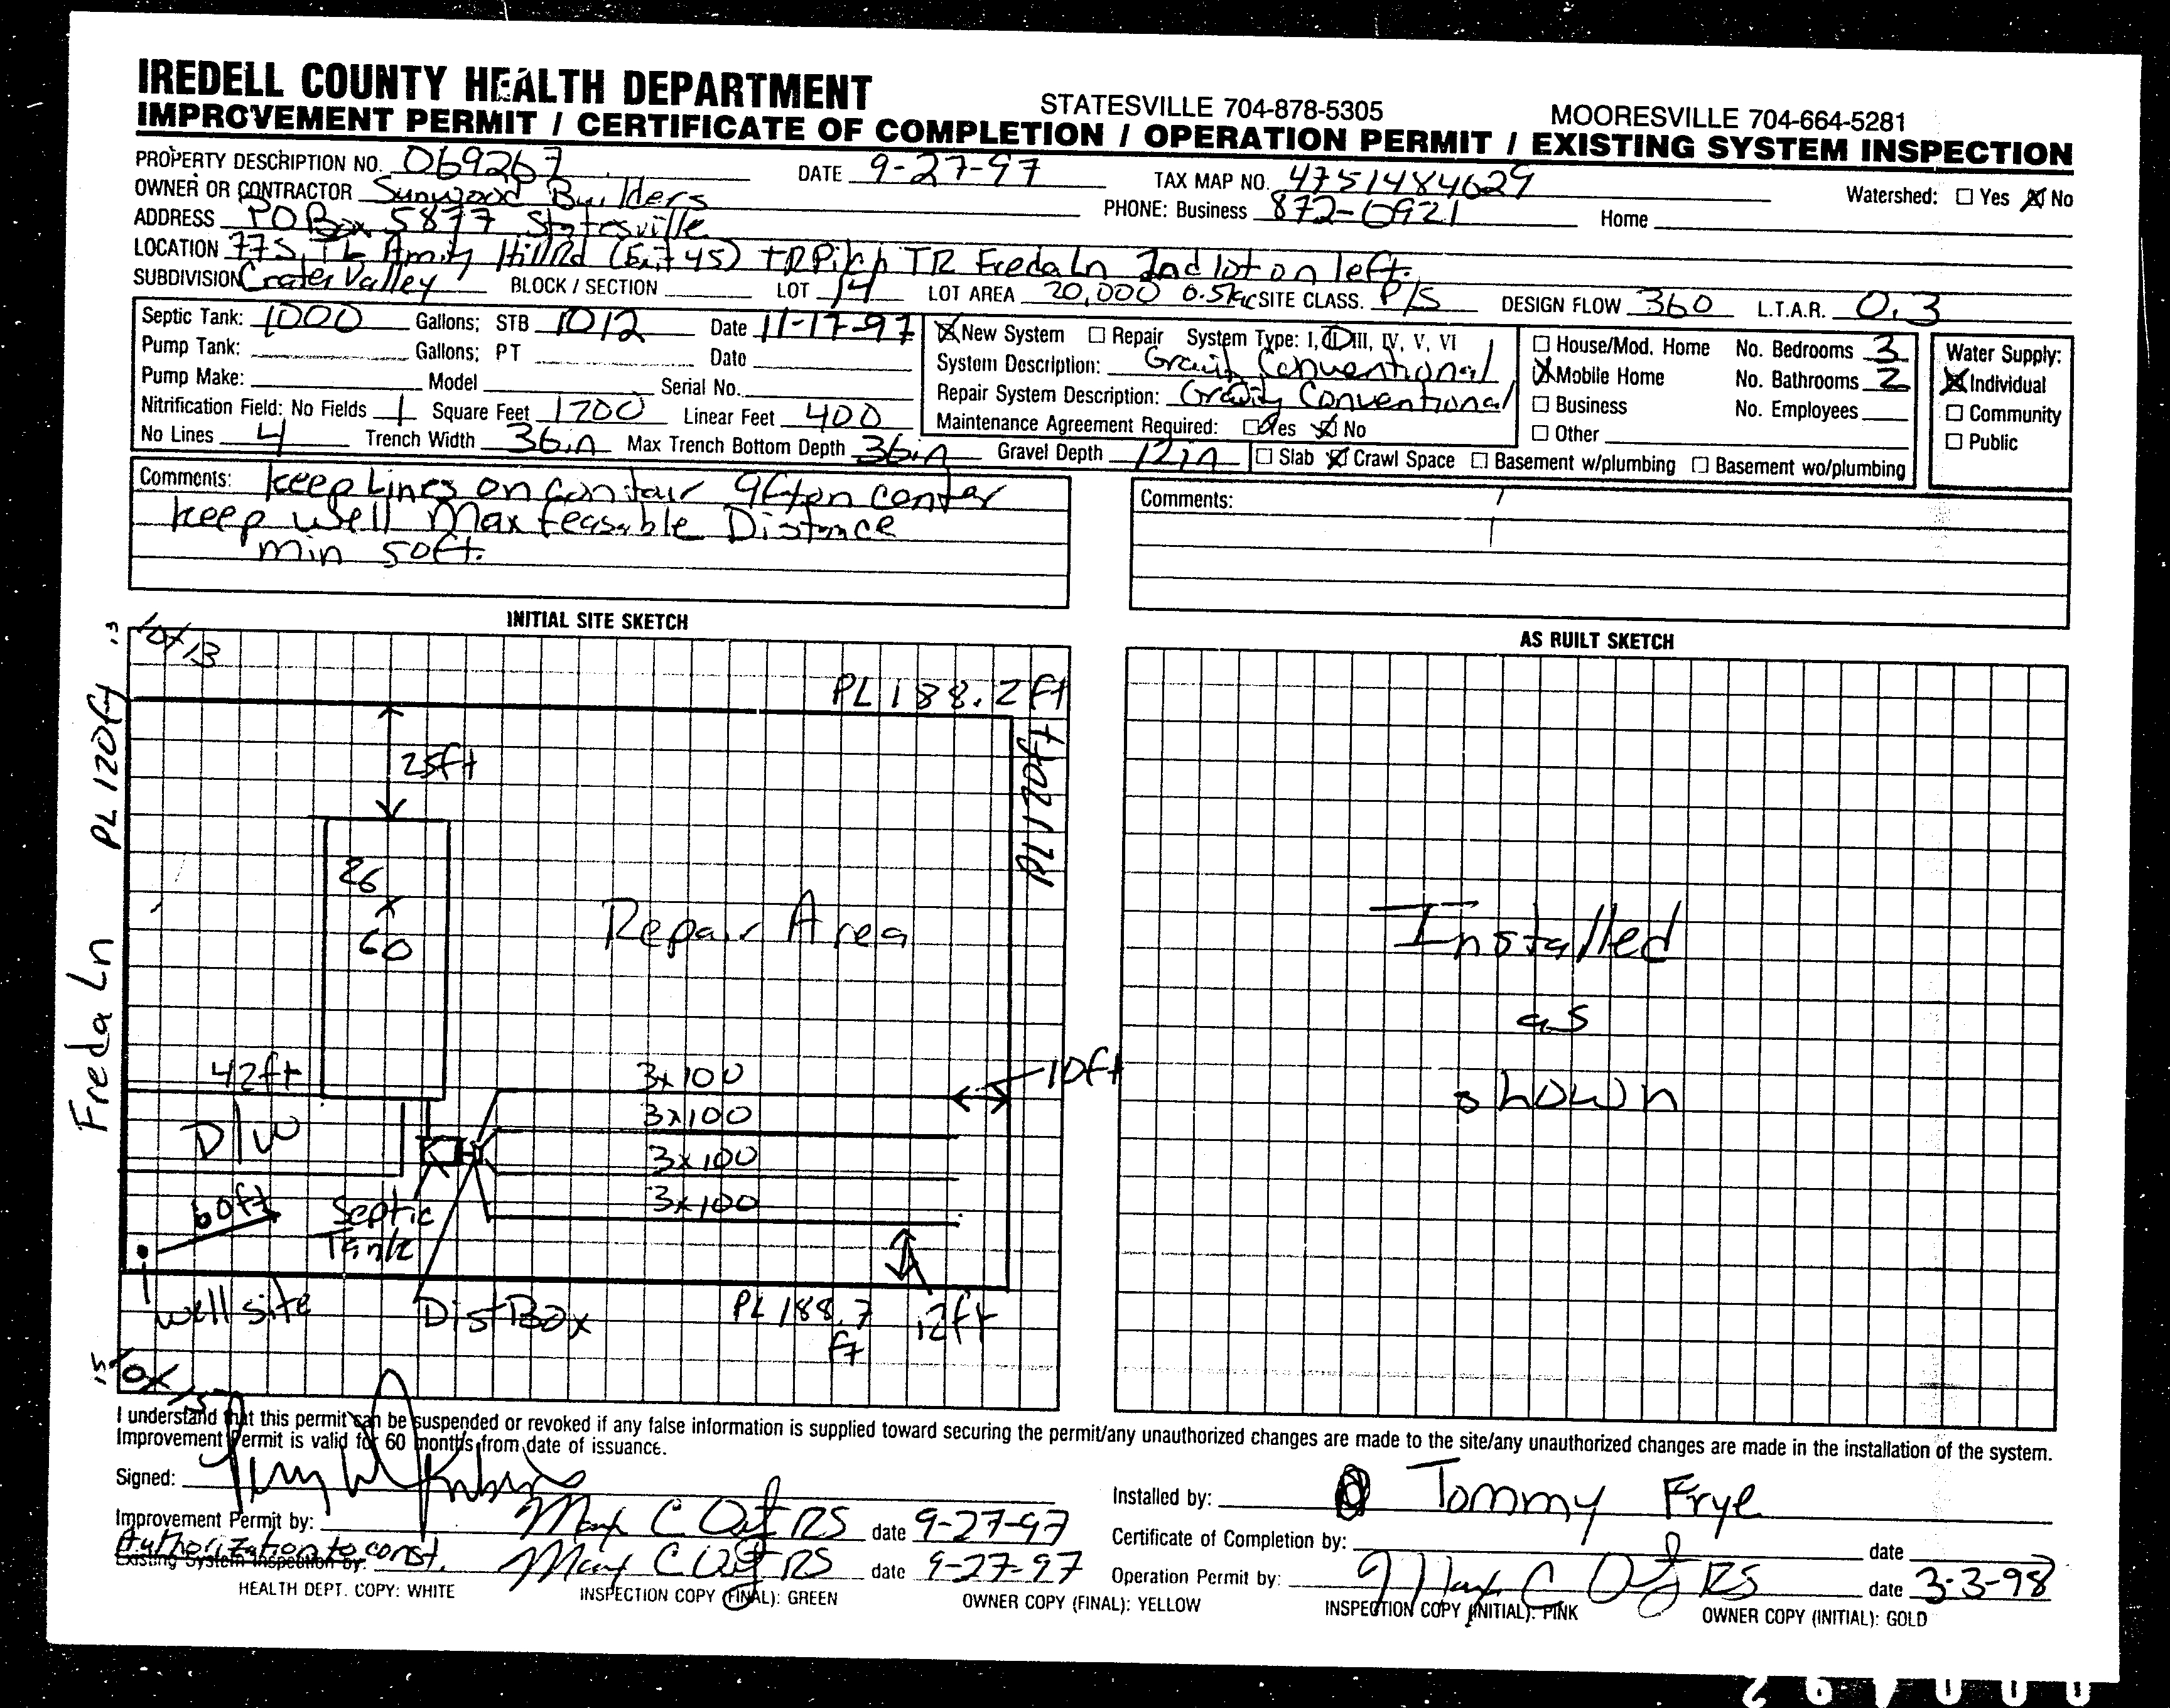 IREDELL COUNTY HEALTH DEPARTMENT
STATESVILLE 704-878-5305 MOORESVILLE 704-664-5281
IMPROVEMENT PERMIT / CERTIFICATE OF COMPLETION / OPERATION PERMIT / EXISTING SYSTEM INSPECTION
PROPERTY DESCRIPTION NO. 069267 DATE 9-27-97 TAX MAP NO. 4751484629 Watershed: Yes No
OWNER OR CONTRACTOR Sunwood Builders PHONE: Business 872-0921 Home
ADDRESS PO Box 5877 Statesville
LOCATION 77S, TL Amity Hill Rd (Exit 45) TR Pilch TR Freda Ln 2nd lot on left.
SUBDIVISION Crater Valley BLOCK / SECTION LOT 14 LOT AREA 20,000 SITE CLASS. P/S DESIGN FLOW 360 L.T.A.R. 0.3
Septic Tank: 1000 Gallons; STB 1012 Date 11-17-97
Pump Tank: Gallons; PT Date
Pump Make: Model Serial No.
Nitrification Field: No Fields 1 Square Feet 1200 Linear Feet 400
No Lines 4 Trench Width 36in Max Trench Bottom Depth 36in Gravel Depth 12in
New System Repair System Type: I, II, III, IV, V, VI
System Description: Gravity Conventional
Repair System Description: Gravity Conventional
Maintenance Agreement Required: Yes No
House/Mod. Home No. Bedrooms 3
Mobile Home No. Bathrooms 2
Business No. Employees
Other
Slab Crawl Space Basement w/plumbing Basement wo/plumbing
Water Supply:
Individual
Community
Public
Comments: keep Lines on contair 9ft on center
keep well Max feasable Distance
min 50ft.
Comments:
INITIAL SITE SKETCH
AS BUILT SKETCH
13
PL 188.2ft
PL 120ft
PL 120ft
25ft
26
x
60
Repair Area
Freda Ln
42ft
D/W
3x100
3x100
3x100
3x100
10ft
60ft
Septic
Tank
well site
Dist Box
PL 188.7
ft
12ft
15
Installed
as
shown
I understand that this permit can be suspended or revoked if any false information is supplied toward securing the permit/any unauthorized changes are made to the site/any unauthorized changes are made in the installation of the system.
Improvement Permit is valid for 60 months from date of issuance.
Signed:
Installed by: Tommy Frye
Improvement Permit by: RS date 9-27-97
Certificate of Completion by: date
Authorization to const.
Existing System Inspection by: RS date 9-27-97
Operation Permit by: RS date 3-3-98
HEALTH DEPT. COPY: WHITE INSPECTION COPY (FINAL): GREEN OWNER COPY (FINAL): YELLOW INSPECTION COPY (INITIAL): PINK OWNER COPY (INITIAL): GOLD